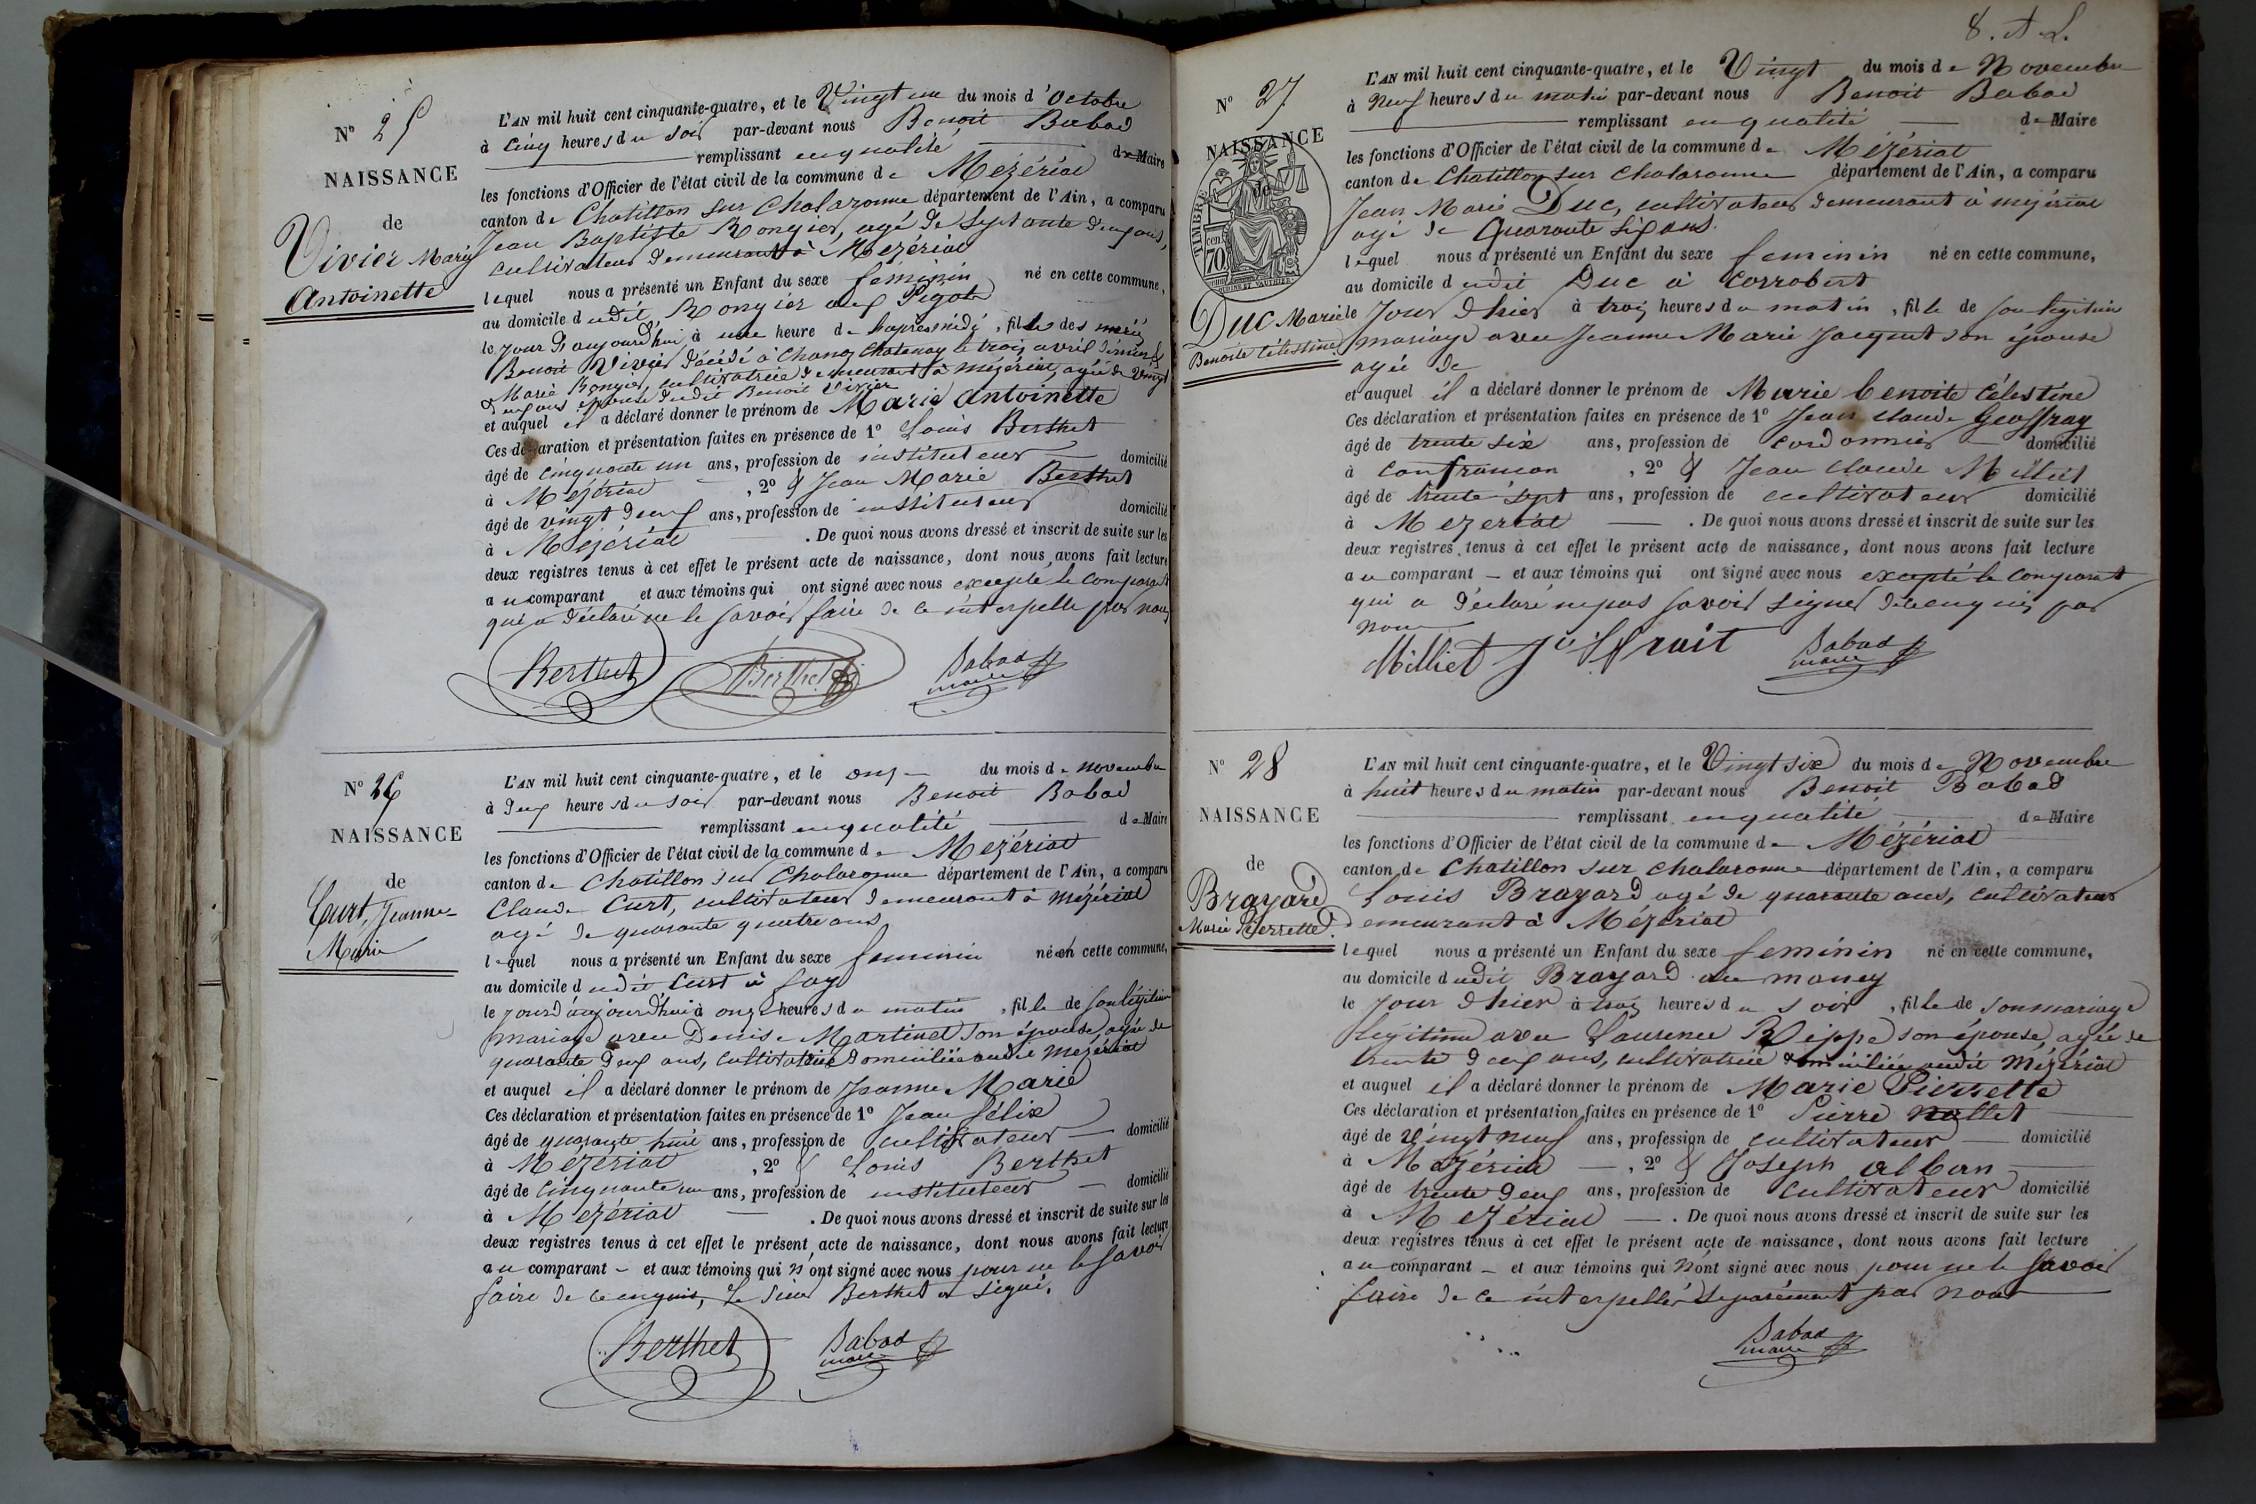 N° 25
NAISSANCE
de
Vivier Marie
Antoinette
L'AN mil huit cent cinquante-quatre, et le Vingt un du mois d'Octobre
à cinq heures du soir par-devant nous Benoit Babad
remplissant en qualité de Maire
les fonctions d'Officier de l'état civil de la commune de Mézériat
canton de Chatillon sur Chalaronne département de l'Ain, a comparu
Jean Baptiste Rongier, agé de septante deux ans,
cultivateur demeurant à Mézériat
lequel nous a présenté un Enfant du sexe féminin né en cette commune,
au domicile dudit Rongier aux
le jour d'aujourd'hui à une heure de l'après midi, fille des mariés
Benoit Vivier décédé à Chanoz Chatenay le trois avril dernier
& Marie Rongier, cultivatrice demeurant à mézériat, agée de Vingt
deux ans épouse dudit Benoit Vivier
et auquel il a déclaré donner le prénom de Marie Antoinette
Ces déclaration et présentation faites en présence de 1° Louis Berthet
âgé de cinquante un ans, profession de instituteur domicilié
à Mézériat, 2° & Jean Marie Berthet
âgé de vingt deux ans, profession de instituteur domicilié
à Mézériat. De quoi nous avons dressé et inscrit de suite sur les
deux registres tenus à cet effet le présent acte de naissance, dont nous avons fait lecture
au comparant et aux témoins qui ont signé avec nous excepté le comparant
qui a déclaré ne le savoir faire de ce interpellé par nous
Berthet Berthet Babad
maire
N° 26
NAISSANCE
de
Curt, Jeanne-
Marie
L'AN mil huit cent cinquante-quatre, et le onze du mois de novembre
à deux heures du soir par-devant nous Benoit Babad
remplissant en qualité de Maire
les fonctions d'Officier de l'état civil de la commune de Mézériat
canton de Chatillon sur Chalaronne département de l'Ain, a comparu
Claude Curt, cultivateur demeurant à mézériat
agé de quarante quatre ans
lequel nous a présenté un Enfant du sexe feminin né en cette commune,
au domicile dudit Curt à
le jour d'aujourd'hui à onze heures du matin, fille de son légitime
mariage avec Denise Martinet son épouse, agée de
quarante deux ans, cultivatrice domiciliée audit Mézériat
et auquel il a déclaré donner le prénom de Jeanne Marie
Ces déclaration et présentation faites en présence de 1° Jean Félix
âgé de quarante huit ans, profession de cultivateur domicilié
à Mézériat, 2° & Louis Berthet
âgé de cinquante un ans, profession de instituteur domicilié
à Mézériat. De quoi nous avons dressé et inscrit de suite sur les
deux registres tenus à cet effet le présent acte de naissance, dont nous avons fait lecture
au comparant – et aux témoins qui n'ont signé avec nous pour ne le savoir
faire de ce enquis, le sieur Berthet a signé.
Berthet Babad
maire
8. A L.
N° 27
NAISSANCE
de
TIMBRE
cen. 70
Duc Marie
Benoite Célestine
L'AN mil huit cent cinquante-quatre, et le Vingt du mois de Novembre
à Neuf heures du matin par-devant nous Benoit Babad
remplissant en qualité de Maire
les fonctions d'Officier de l'état civil de la commune de Mézériat
canton de Chatillon sur Chalaronne département de l'Ain, a comparu
Jean Marie Duc, cultivateur demeurant à mézériat
agé de Quarante six ans.
lequel nous a présenté un Enfant du sexe feminin né en cette commune,
au domicile dudit Duc à Corrobert
le Jour d'hier à trois heures du matin, fille de son légitime
mariage avec Jeanne Marie Jacquet son épouse
agée de
et auquel il a déclaré donner le prénom de Marie benoite Célestine
Ces déclaration et présentation faites en présence de 1° Jean claude Geoffray
âgé de trente six ans, profession de cordonnier domicilié
à confrançon, 2° & Jean claude Milliet
âgé de trente sept ans, profession de cultivateur domicilié
à Mezeriat. De quoi nous avons dressé et inscrit de suite sur les
deux registres tenus à cet effet le présent acte de naissance, dont nous avons fait lecture
au comparant – et aux témoins qui ont signé avec nous excepté le comparant
qui a déclaré ne pas savoir signer de ce enquis par
nous
Milliet Babad
maire
N° 28
NAISSANCE
de
Brayard
Marie Pierrette
L'AN mil huit cent cinquante-quatre, et le Vingt six du mois de Novembre
à huit heures du matin par-devant nous Benoit Babad
remplissant en qualité de Maire
les fonctions d'Officier de l'état civil de la commune de Mézériat
canton de Chatillon sur chalaronne département de l'Ain, a comparu
Louis Brayard agé de quarante ans, cultivateur
demeurant à Mézériat
lequel nous a présenté un Enfant du sexe feminin né en cette commune,
au domicile dudit Brayard au money
le jour d'hier à trois heures du soir, fille de son mariage
légitime avec Laurence Rippe son épouse, agée de
trente deux ans, cultivatrice domiciliée audit Mézériat
et auquel il a déclaré donner le prénom de Marie Pierrette
Ces déclaration et présentation faites en présence de 1° Pierre Nallet
âgé de vingt neuf ans, profession de cultivateur domicilié
à Mézériat, 2° & Joseph alban
âgé de trente deux ans, profession de cultivateur domicilié
à Mézériat. De quoi nous avons dressé et inscrit de suite sur les
deux registres tenus à cet effet le présent acte de naissance, dont nous avons fait lecture
au comparant – et aux témoins qui n'ont signé avec nous pour ne le savoir
faire de ce interpellés séparément par nous
Babad
maire